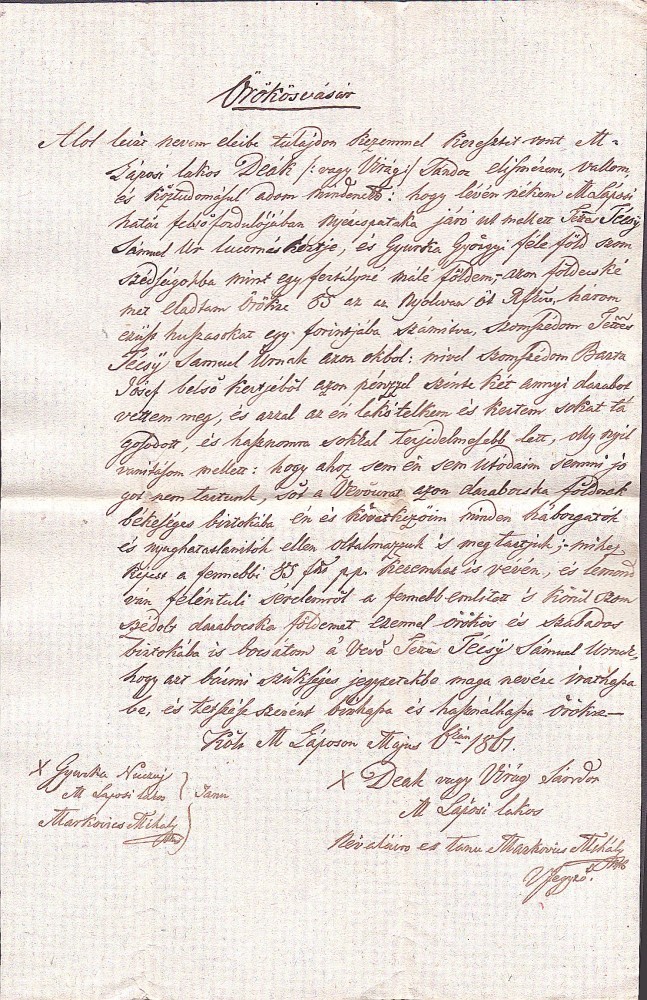 Örökösvásár
Alol leirt nevem eleibe tulajdon kezemmel keresztet vont M.
Láposi lakos Deák /: vagy Virág :/ Sándor elismérem, vallom,
és köztudomásul adom mindenek: hogy lévén nékem M Láposi
határ felső fordulójában nyércspataka járó ut mellett Tettes Técsÿ
Sámuel Ur lucernás kertje, és Gyurka Györgyi féle föld szom
szédségokba mint egy fertályné málé földem, azon földecské
met eladtam Örökre 85 az az Nyolcvan öt Rftus, három
ezüst huszasokat egy forintjába számitva, szomszédom Tettes
Técsÿ Samuel Urnak azon okból: mivel szomszédom Barta
Jósef belső kertjéből azon pénzzel szinte két annyi darabot
vettem meg, és azzal az én lakó telkem és kertem sokat tá
gosodott, és hasznomra sokkal terjedelmesebb lett, olly nyil
vanitásom mellett: hogy ahoz sem én sem utodaim semmi jo
got nem tartunk, sőt a Vevőurat azon darabocska földnek
békeséges birtokába én és következőim minden háborgatók
és nyughatatlanitók ellen oltalmazzuk 's megtartjuk;
a fennebbi 85 p.p. kezemhez is vévén, és lemond
ván félentuli sérelemről a fennebb emlitett és körül szom
szédolt darabocska földemet ezennel örökös és szabados
birtokába is bocsátom a Vevő Tettes Técsÿ Sámuel Urnak,
hogy azt bármi szükséges jegyzetekbe maga nevére irathassa
be, és tetszése szerént birhassa és használhassa Örökre—
Költ M Láposon Május 6án 1861.
X Gyurka
M Láposi lakos } Tanu
Markovics Mihály
X Deak vagy Virág Sándor
M Láposi lakos
Névaláiro es tanu Markovics Mihály
Jegyző.